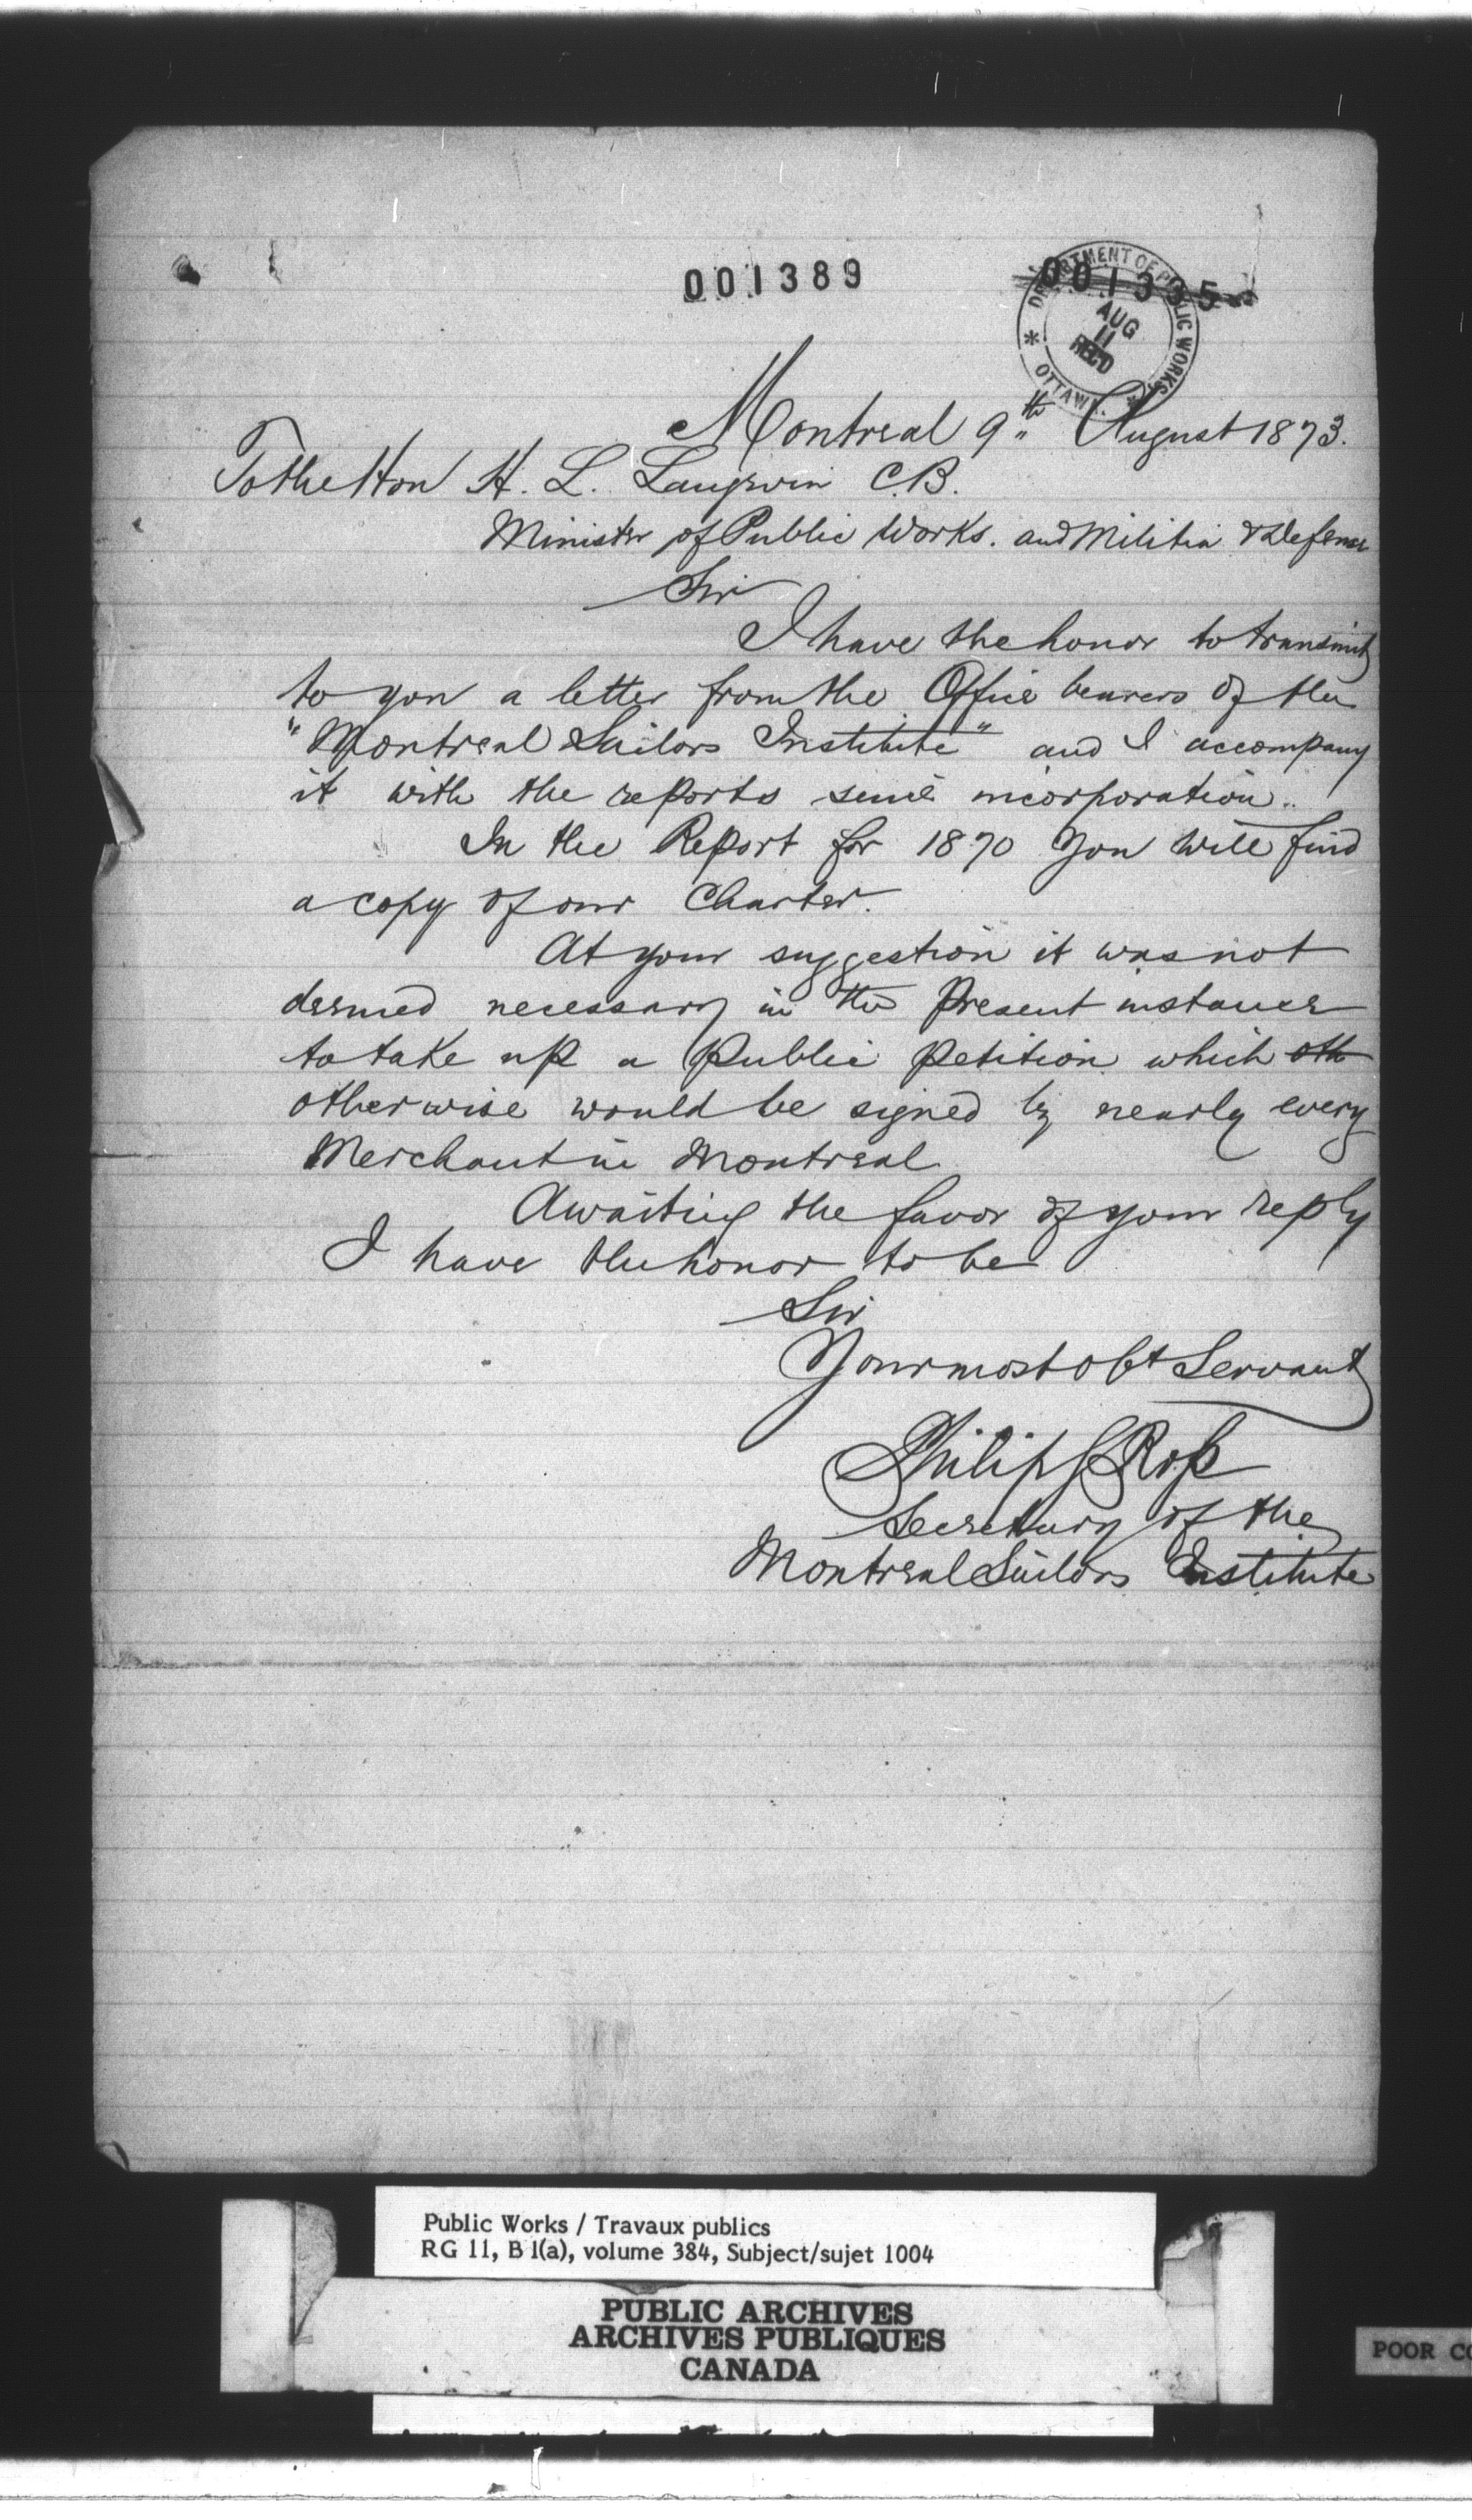 001389
001335
DEPARTMENT OF PUBLIC WORKS
AUG
11
REC'D
OTTAWA
Montreal 9th August 1873.
To the Hon H. L. Langevin C.B.
Minister of Public Works. and Militia & Defense
Sir
I have the honor to transmit
to you a letter from the Office bearers of the
"Montreal Sailors Institute" and I accompany
it with the reports since incorporation.
In the Report for 1870 you will find
a copy of our Charter.
At your suggestion it was not
deemed necessary in the present instance
to take up a Public Petition which oth
otherwise would be signed by nearly every
Merchant in Montreal
Awaiting the favor of your reply
I have the honor to be
Sir
Your most obt Servant
Philip S Ross
Secretary of the
Montreal Sailors Institute
Public Works / Travaux publics
RG 11, B 1(a), volume 384, Subject/sujet 1004
PUBLIC ARCHIVES
ARCHIVES PUBLIQUES
CANADA
POOR CO